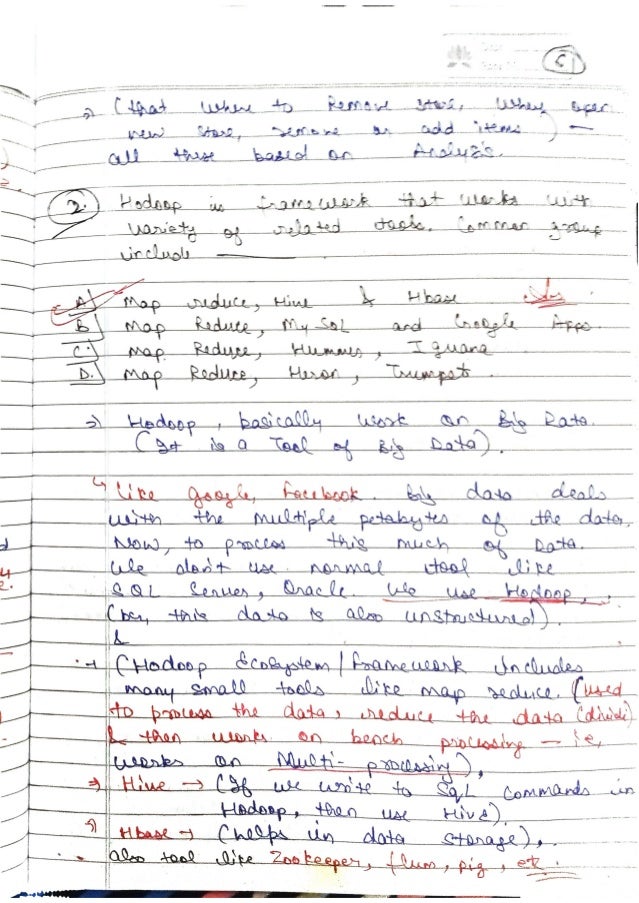 ⇒ (that where to remove store, where open
new store, remove or add items) —
all these based on Analyzis.
2. Hadoop is framework that works with
variety of related tools. Common group
include ———
A) Map reduce, Hive & Hbase
B) Map Reduce, My SQL and Google Apps.
C.) Map Reduce, Hummus, Iguana
D.) Map Reduce, Heron, Trumpet.
⇒ Hadoop, basically work on Big Data.
(It is a Tool of Big Data).
↳ like google, facebook. Big data deals
with the multiple petabytes of the data,
Now, to process this much of Data.
We don't use normal tool like
SQL Server, Oracle. We use Hadoop,
(bcz, this data is also unstructured).
&
→ (Hadoop Ecosystem / framework Includes
many small tools like map reduce. (used
to process the data, reduce the data (divide)
& then works on bench processing — i.e,
works on Multi-processing),
⇒ Hive → (If we write to SqL commands in
Hadoop, then use Hive).
⇒ Hbase → (helps in data storage),.
also tool like Zookeeper, flum, pig, etc.